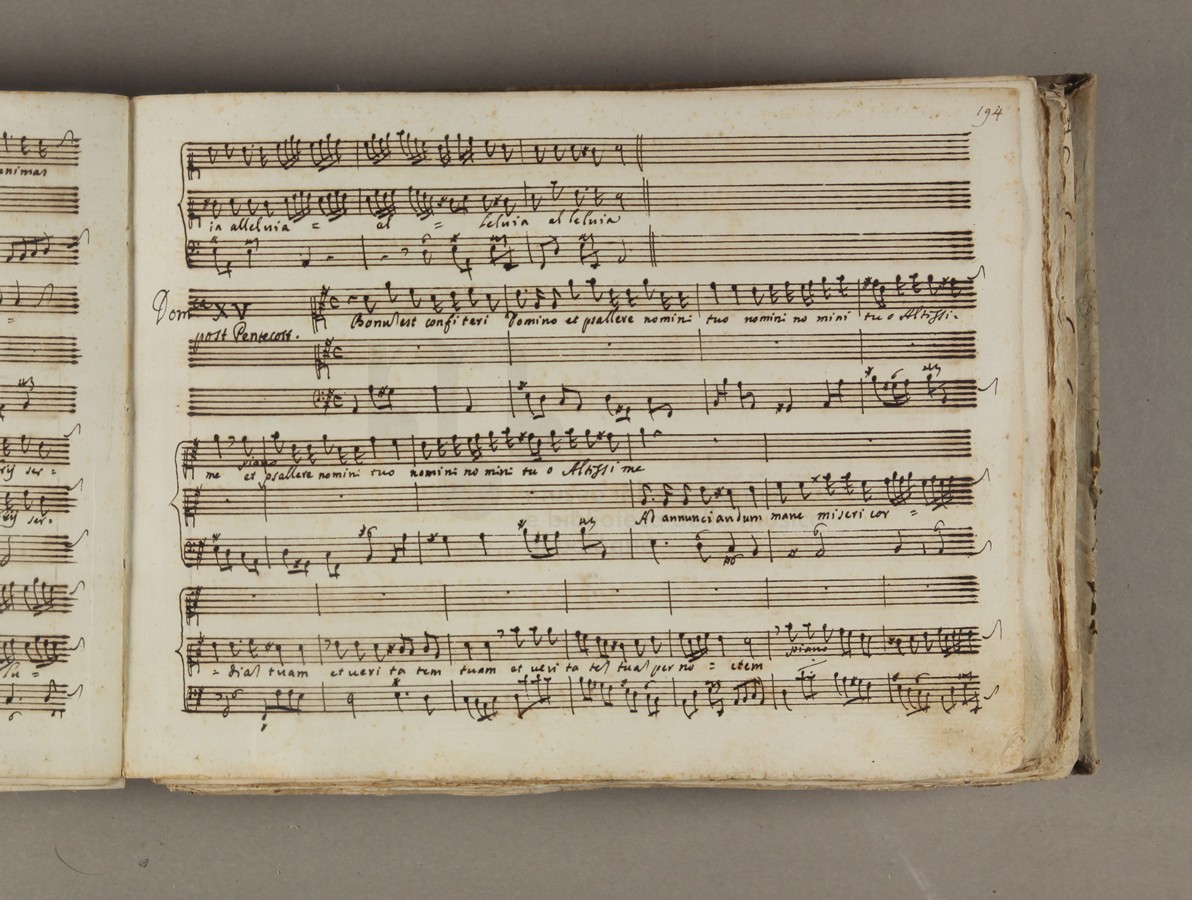 194
enimas
ia alleluia = al = leluia alleluia
Dom.ca XV
post Pentecost.
Bonu est confiteri Domino et psallere nomini tuo nomini no mini tu o Altissi-
me et psallere nomini tuo nomini no mini tu o Altissi me
piano
ser =
ser.
Ad annunciandum mane miseri cor =
- dia tuam et veri ta tem tuam et veri ta te tua per no = ctem
piano